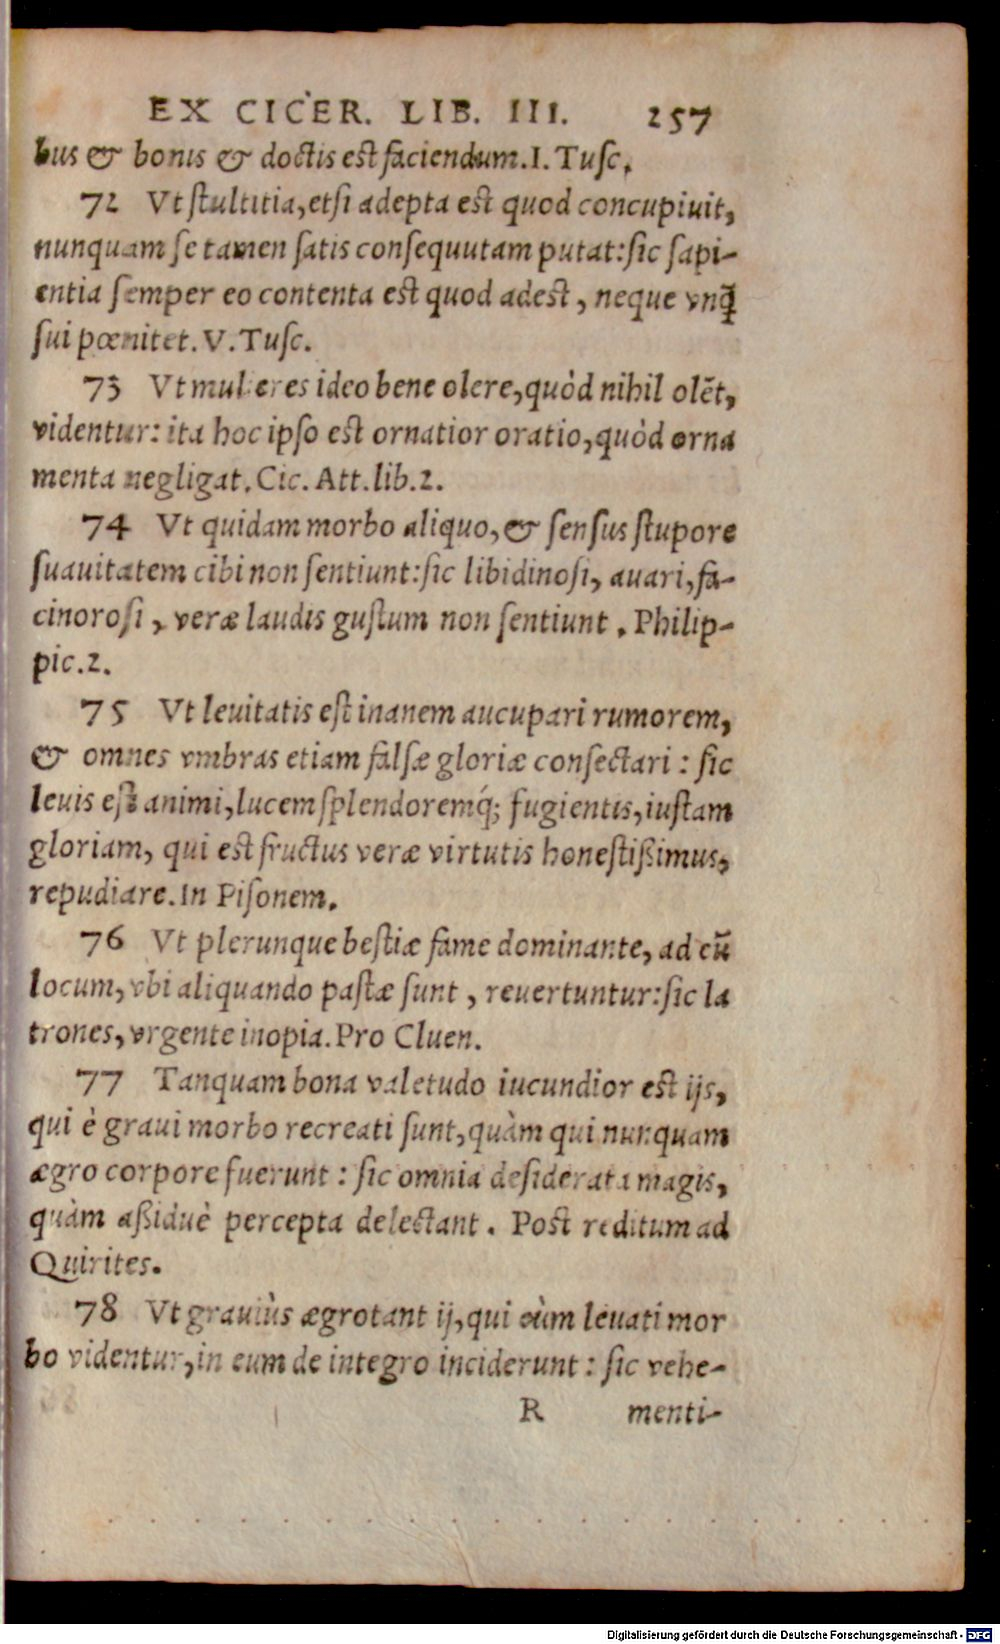 EX CICER. LIB. III. 257
bus & bonis & doctis est faciendum. I. Tusc.
72 Vt stultitia, etsi adepta est quod concupiuit,
nunquam se tamen satis consequutam putat: sic sapi-
entia semper eo contenta est quod adest, neque vnq̃
sui pœnitet. V. Tusc.
73 Vt mulieres ideo bene olere, quòd nihil olẽt,
videntur: ita hoc ipso est ornatior oratio, quòd orna
menta negligat. Cic. Att. lib. 2.
74 Vt quidam morbo aliquo, & sensus stupore
suauitatem cibi non sentiunt: sic libidinosi, auari, fa-
cinorosi, veræ laudis gustum non sentiunt. Philip-
pic. 2.
75 Vt leuitatis est inanem aucupari rumorem,
& omnes vmbras etiam falsæ gloriæ consectari: sic
leuis est animi, lucem splendoremq́; fugientis, iustam
gloriam, qui est fructus veræ virtutis honestißimus,
repudiare. In Pisonem.
76 Vt plerunque bestiæ fame dominante, ad eũ
locum, vbi aliquando pastæ sunt, reuertuntur: sic la
trones, vrgente inopia. Pro Cluen.
77 Tanquam bona valetudo iucundior est ijs,
qui è graui morbo recreati sunt, quàm qui nunquam
ægro corpore fuerunt: sic omnia desiderata magis,
quàm aßiduè percepta delectant. Post reditum ad
Quirites.
78 Vt grauiùs ægrotant ij, qui cùm leuati mor
bo videntur, in eum de integro inciderunt: sic vehe-
R menti-
Digitalisierung gefördert durch die Deutsche Forschungsgemeinschaft - DFG